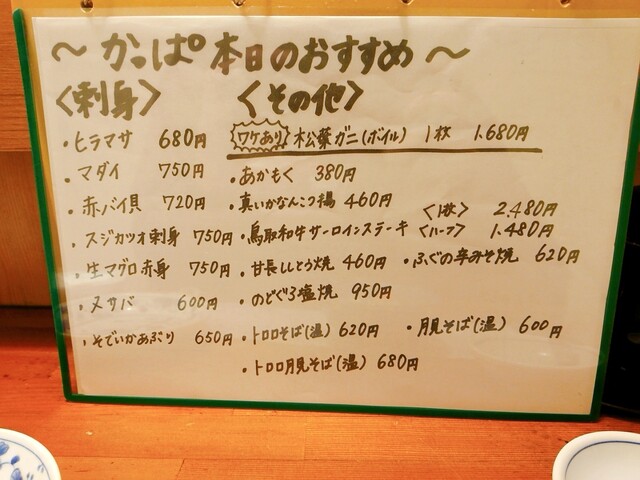 〜かっぱ°本日のおすすめ〜
〈刺身〉
・ヒラマサ 680円
・マダイ 750円
・赤バイ貝 720円
・スジカツオ刺身 750円
・生マグロ赤身 750円
・〆サバ 600円
・そでいかあぶり 650円
〈その他〉
ワケあり 松葉ガニ(ボイル) 1枚 1.680円
・あかもく 380円
・真いかなんこつ揚 460円
・鳥取和牛サーロインステーキ 〈1枚〉 2.480円
〈ハーフ〉 1.480円
・甘長ししとう焼 460円 ・ふぐの辛みそ焼 620円
・のどぐろ塩焼 950円
・トロロそば(温) 620円 ・月見そば(温) 600円
・トロロ月見そば(温) 680円